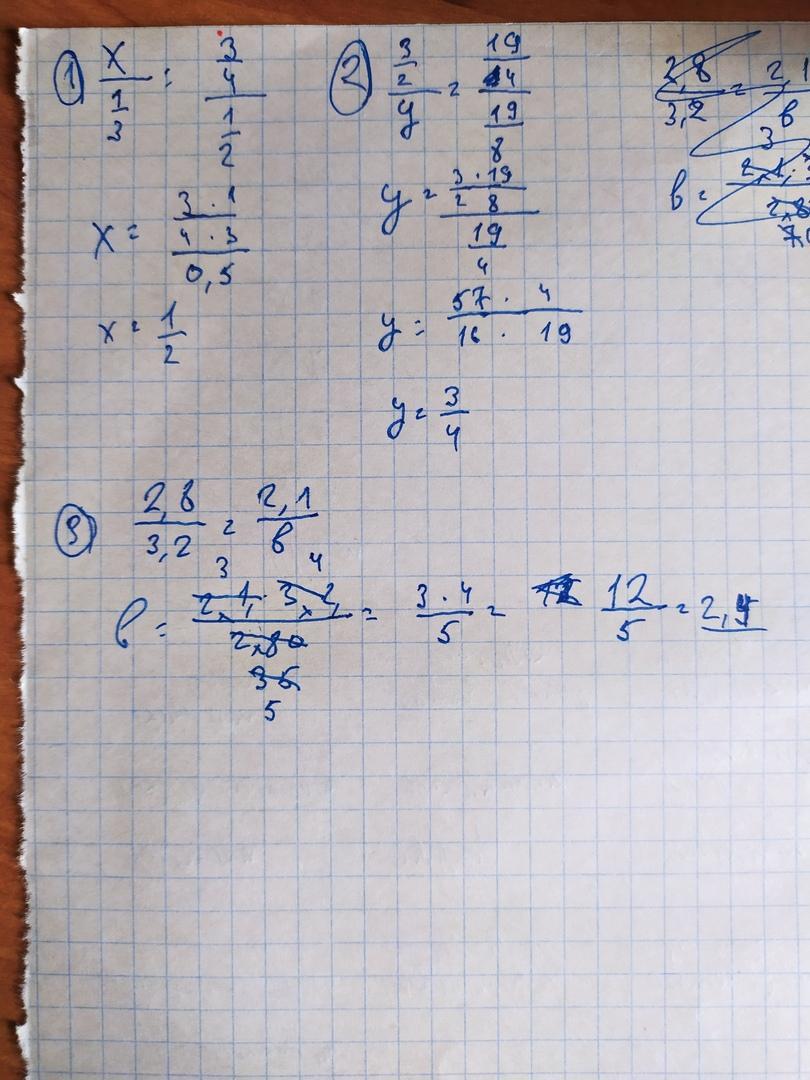 ① x / (1/3) = (3/4) / (1/2)
x = (3·1 / 4·3) / 0,5
x = 1/2
② (3/2) / y = (19/4) / (19/8)
y = (3·19 / 2 8) / (19/4)
y = 57 · 4 / 16 · 19
y = 3/4
2,8/3,2 = 2,1/в
в =
③ 2,8/3,2 = 2,1/в
3 4
в = 2,1 · 3,2 / 2,80 = 3·4/5 = 12/5 = 2,4
5